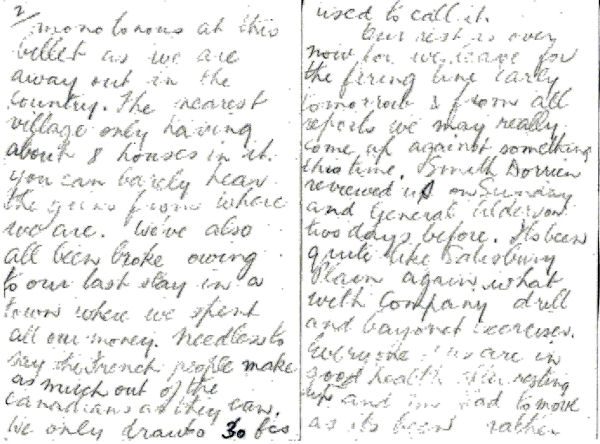 2/
monotonous at this
billet as we are
away out in the
country. The nearest
village only having
about 8 houses in it.
you can barely hear
the guns from where
we are. We've also
all been broke owing
to our last stay in a
town where we spent
all our money. Needless to
say the French people make
as much out of the
Canadians as they can.
We only draw 30
used to call it.
Our rest is over
now for we leave for
the firing line early
tomorrow & from all
reports we may really
come up against something
this time. Smith Dorrien
reviewed us on Sunday
and General Alderson
two days before. Its been
quite like Salisbury
Plain again what
with Company drill
and bayonet exercises.
Everyone are in
good health after resting
up and to move
as its been rather